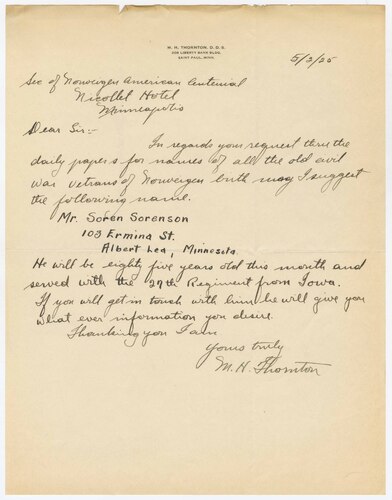 M. H. THORNTON, D. D. S.
208 LIBERTY BANK BLDG.
SAINT PAUL, MINN.
5/2/25
Sec of Norwegen American Centenial
Nicollet Hotel
Minneapolis
Dear Sir:-
In regards your request thru the
daily papers for names of all the old civil
war vetrans of Norwegen birth may I suggest
the following name.
Mr. Soren Sorenson
103 Ermina St.
Albert Lea, Minnesota
He will be eighty five years old this month and
served with the 27th Regiment from Iowa.
If you will get in touch with him he will give you
what ever information you desire.
Thanking you I am
Yours truly
M. H. Thornton